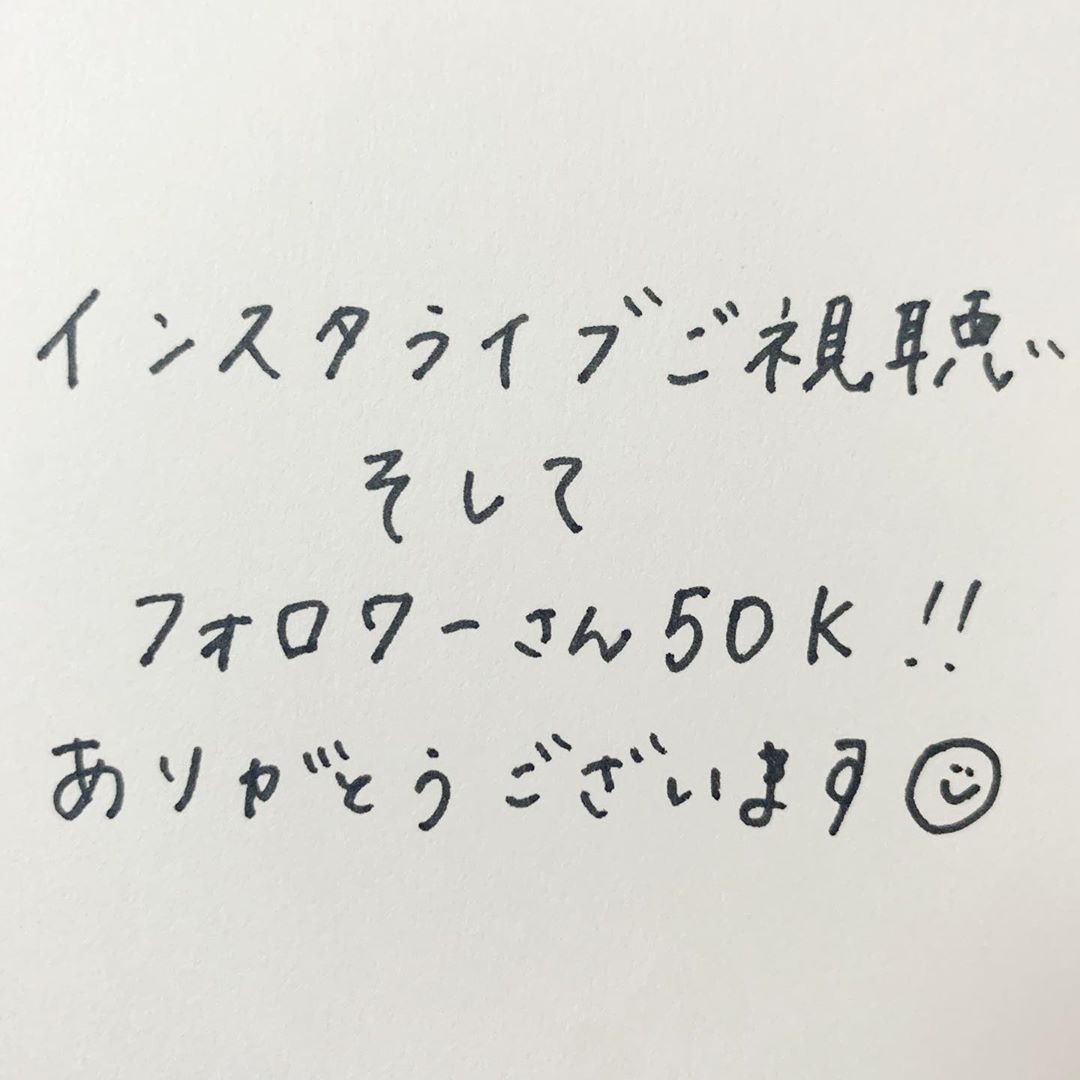 インスタライブご視聴
そして
フォロワーさん50K!!
ありがとうございます